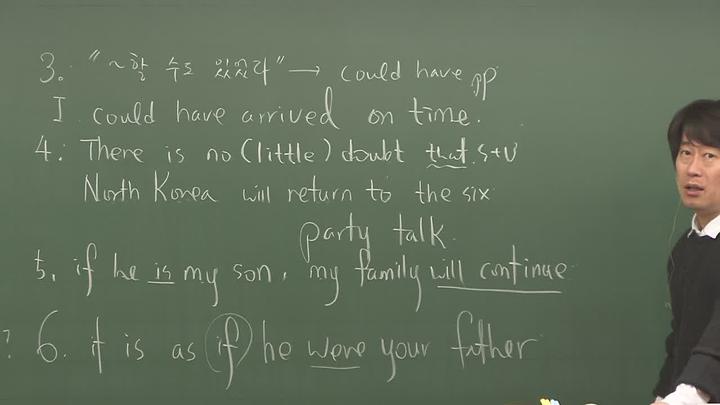 3. "~할 수도 있었다" → could have pp
I could have arrived on time.
4. There is no (little) doubt that S+V
North Korea will return to the six
party talk.
5. if he is my son, my family will continue
? 6. it is as if he were your father